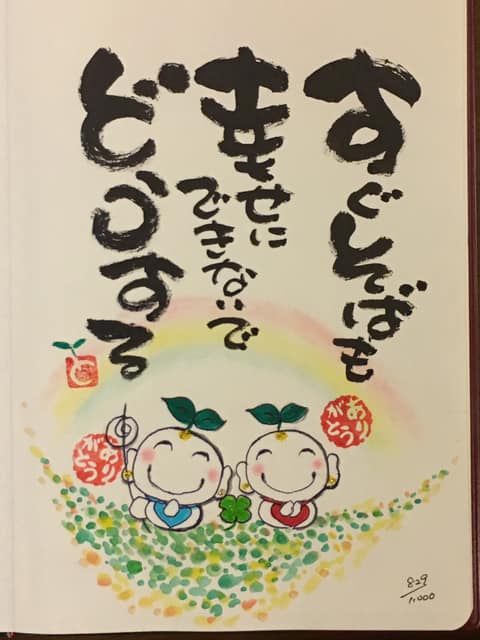 すぐそばも
幸せに
できないで
どうする
ありがとう
ありがとう
829/1,000